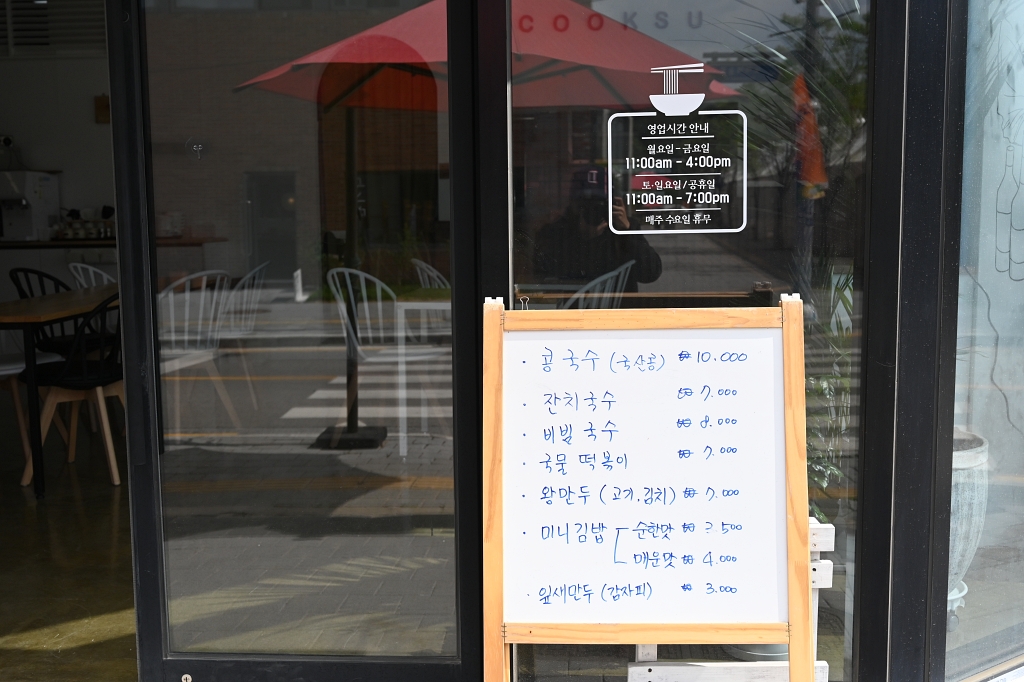 COOKSU
영업시간 안내
월요일 - 금요일
11:00am - 4:00pm
토·일요일 / 공휴일
11:00am - 7:00pm
매주 수요일 휴무
· 콩국수 (국산콩) ₩ 10.000
· 잔치국수 ₩ 7.000
· 비빌국수 ₩ 8.000
· 국물 떡볶이 ₩ 7.000
· 왕만두 (고기.김치) ₩ 7.000
· 미니김밥 순한맛 ₩ 3.500
매운맛 ₩ 4.000
· 잎새만두 (감자피) ₩ 3.000